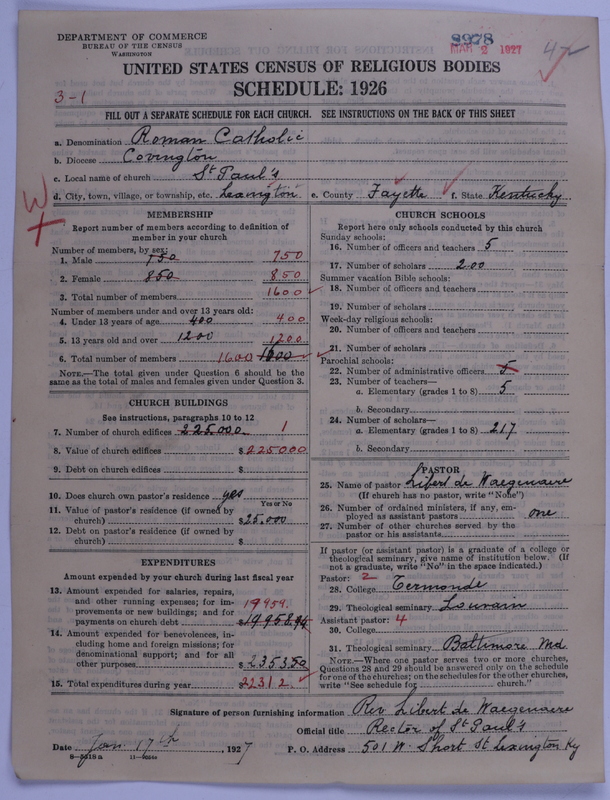 DEPARTMENT OF COMMERCE
BUREAU OF THE CENSUS
WASHINGTON
8978
MAR 2 1927
UNITED STATES CENSUS OF RELIGIOUS BODIES
SCHEDULE: 1926
3-1
FILL OUT A SEPARATE SCHEDULE FOR EACH CHURCH. SEE INSTRUCTIONS ON THE BACK OF THIS SHEET
a. Denomination Roman Catholic
b. Diocese Covington
c. Local name of church St Paul's
d. City, town, village, or township, etc. Lexington e. County Fayette f. State Kentucky
MEMBERSHIP
Report number of members according to definition of member in your church
Number of members, by sex:
1. Male 750 750
2. Female 850 850
3. Total number of members 1600
Number of members under and over 13 years old:
4. Under 13 years of age 400 400
5. 13 years old and over 1200 1200
6. Total number of members 1600 1600
NOTE.—The total given under Question 6 should be the same as the total of males and females given under Question 3.
CHURCH BUILDINGS
See instructions, paragraphs 10 to 12
7. Number of church edifices 225000 1
8. Value of church edifices $225000
9. Debt on church edifices $
10. Does church own pastor's residence yes
Yes or No
11. Value of pastor's residence (if owned by church) $25,000
12. Debt on pastor's residence (if owned by church) $
EXPENDITURES
Amount expended by your church during last fiscal year
13. Amount expended for salaries, repairs, and other running expenses; for improvements or new buildings; and for payments on church debt 19959. $19958.94
14. Amount expended for benevolences, including home and foreign missions; for denominational support; and for all other purposes $2353.50
15. Total expenditures during year $22312.
CHURCH SCHOOLS
Report here only schools conducted by this church
Sunday schools:
16. Number of officers and teachers 5
17. Number of scholars 200
Summer vacation Bible schools:
18. Number of officers and teachers
19. Number of scholars
Week-day religious schools:
20. Number of officers and teachers
21. Number of scholars
Parochial schools:
22. Number of administrative officers 5
23. Number of teachers—
a. Elementary (grades 1 to 8) 5
b. Secondary
24. Number of scholars—
a. Elementary (grades 1 to 8) 217
b. Secondary
PASTOR
25. Name of pastor Libert de Waegenaere
(If church has no pastor, write "None")
26. Number of ordained ministers, if any, employed as assistant pastors one
27. Number of other churches served by the pastor or his assistants
If pastor (or assistant pastor) is a graduate of a college or theological seminary, give name of institution below. (If not a graduate, write "No" in the space indicated.)
Pastor: 2
28. College Termonde
29. Theological seminary Louvain
Assistant pastor: 4
30. College
31. Theological seminary Baltimore Md.
NOTE.—Where one pastor serves two or more churches, Questions 28 and 29 should be answered only on the schedule for one of the churches; on the schedules for the other churches, write "See schedule for church."
Signature of person furnishing information Rev Libert de Waegenaere
Official title Rector of St Paul's
Date Jan. 17th, 1927 P. O. Address 501 W. Short St Lexington Ky